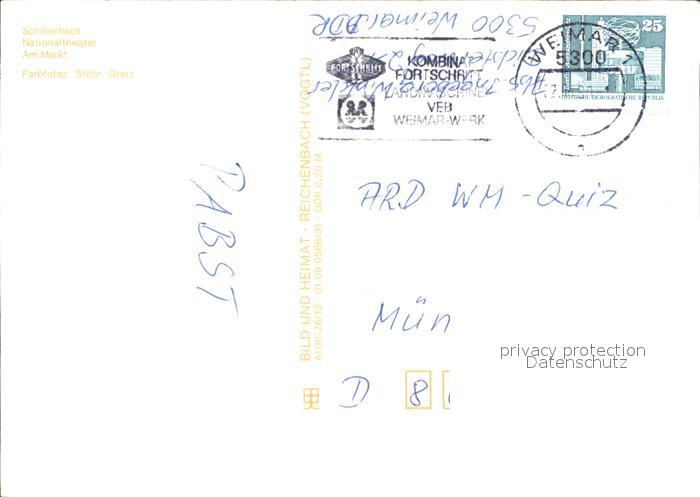 Schillerhaus
Nationaltheater
Am Markt
Farbfotos: Stöhr, Greiz
PABST
BILD UND HEIMAT · REICHENBACH (VOGTL)
A1/III/26/13 · 01 09 0568/31 · DDR 0,20 M
5300 Weimar DDR
Abs. Ingeborg Winkler
FORTSCHRITT
KOMBINAT
FORTSCHRITT
LANDMASCHINEN
VEB
WEIMAR-WERK
WEIMAR 1
5300
25
DEUTSCHE DEMOKRATISCHE REPUBLIK
ARD WM-Quiz
Mün
privacy protection
Datenschutz
D 8